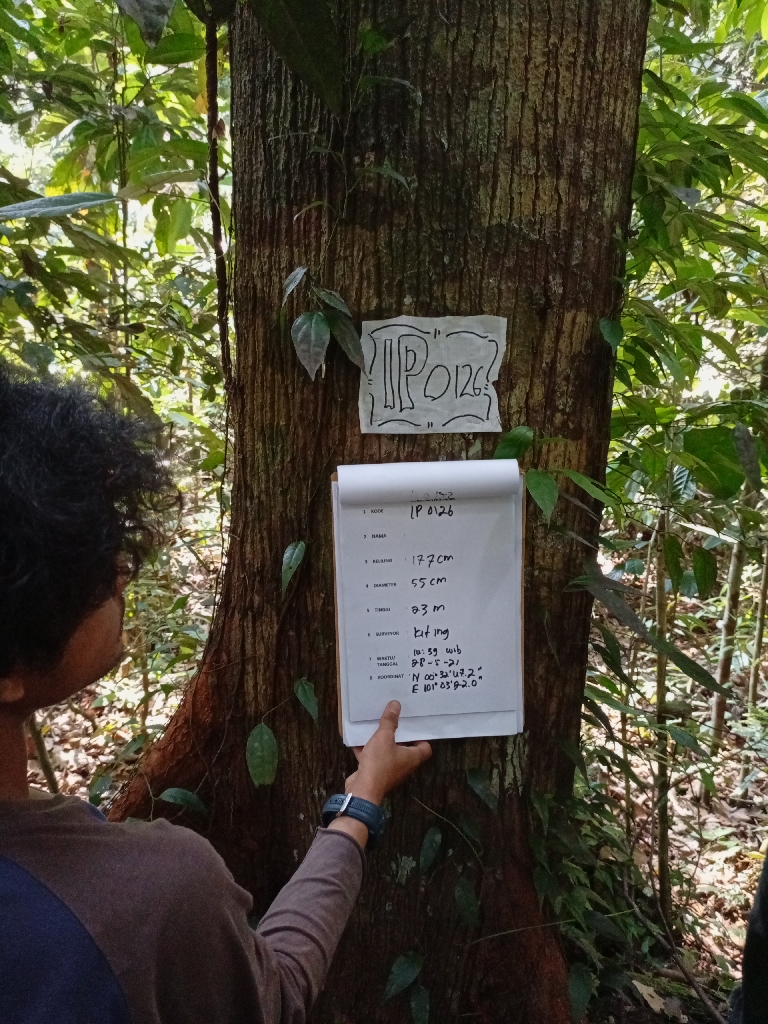 IP 0126
1 KODE : IP 0126
2 NAMA :
3 KELILING : 177 cm
4 DIAMETER : 55 cm
5 TINGGI : 23 m
6 SURVEYOR : kiting
7 WAKTU/ : 10:39 wib
TANGGAL 28-5-21
8 KOORDINAT : N 00°32'47.2"
E 101°03'22.0"